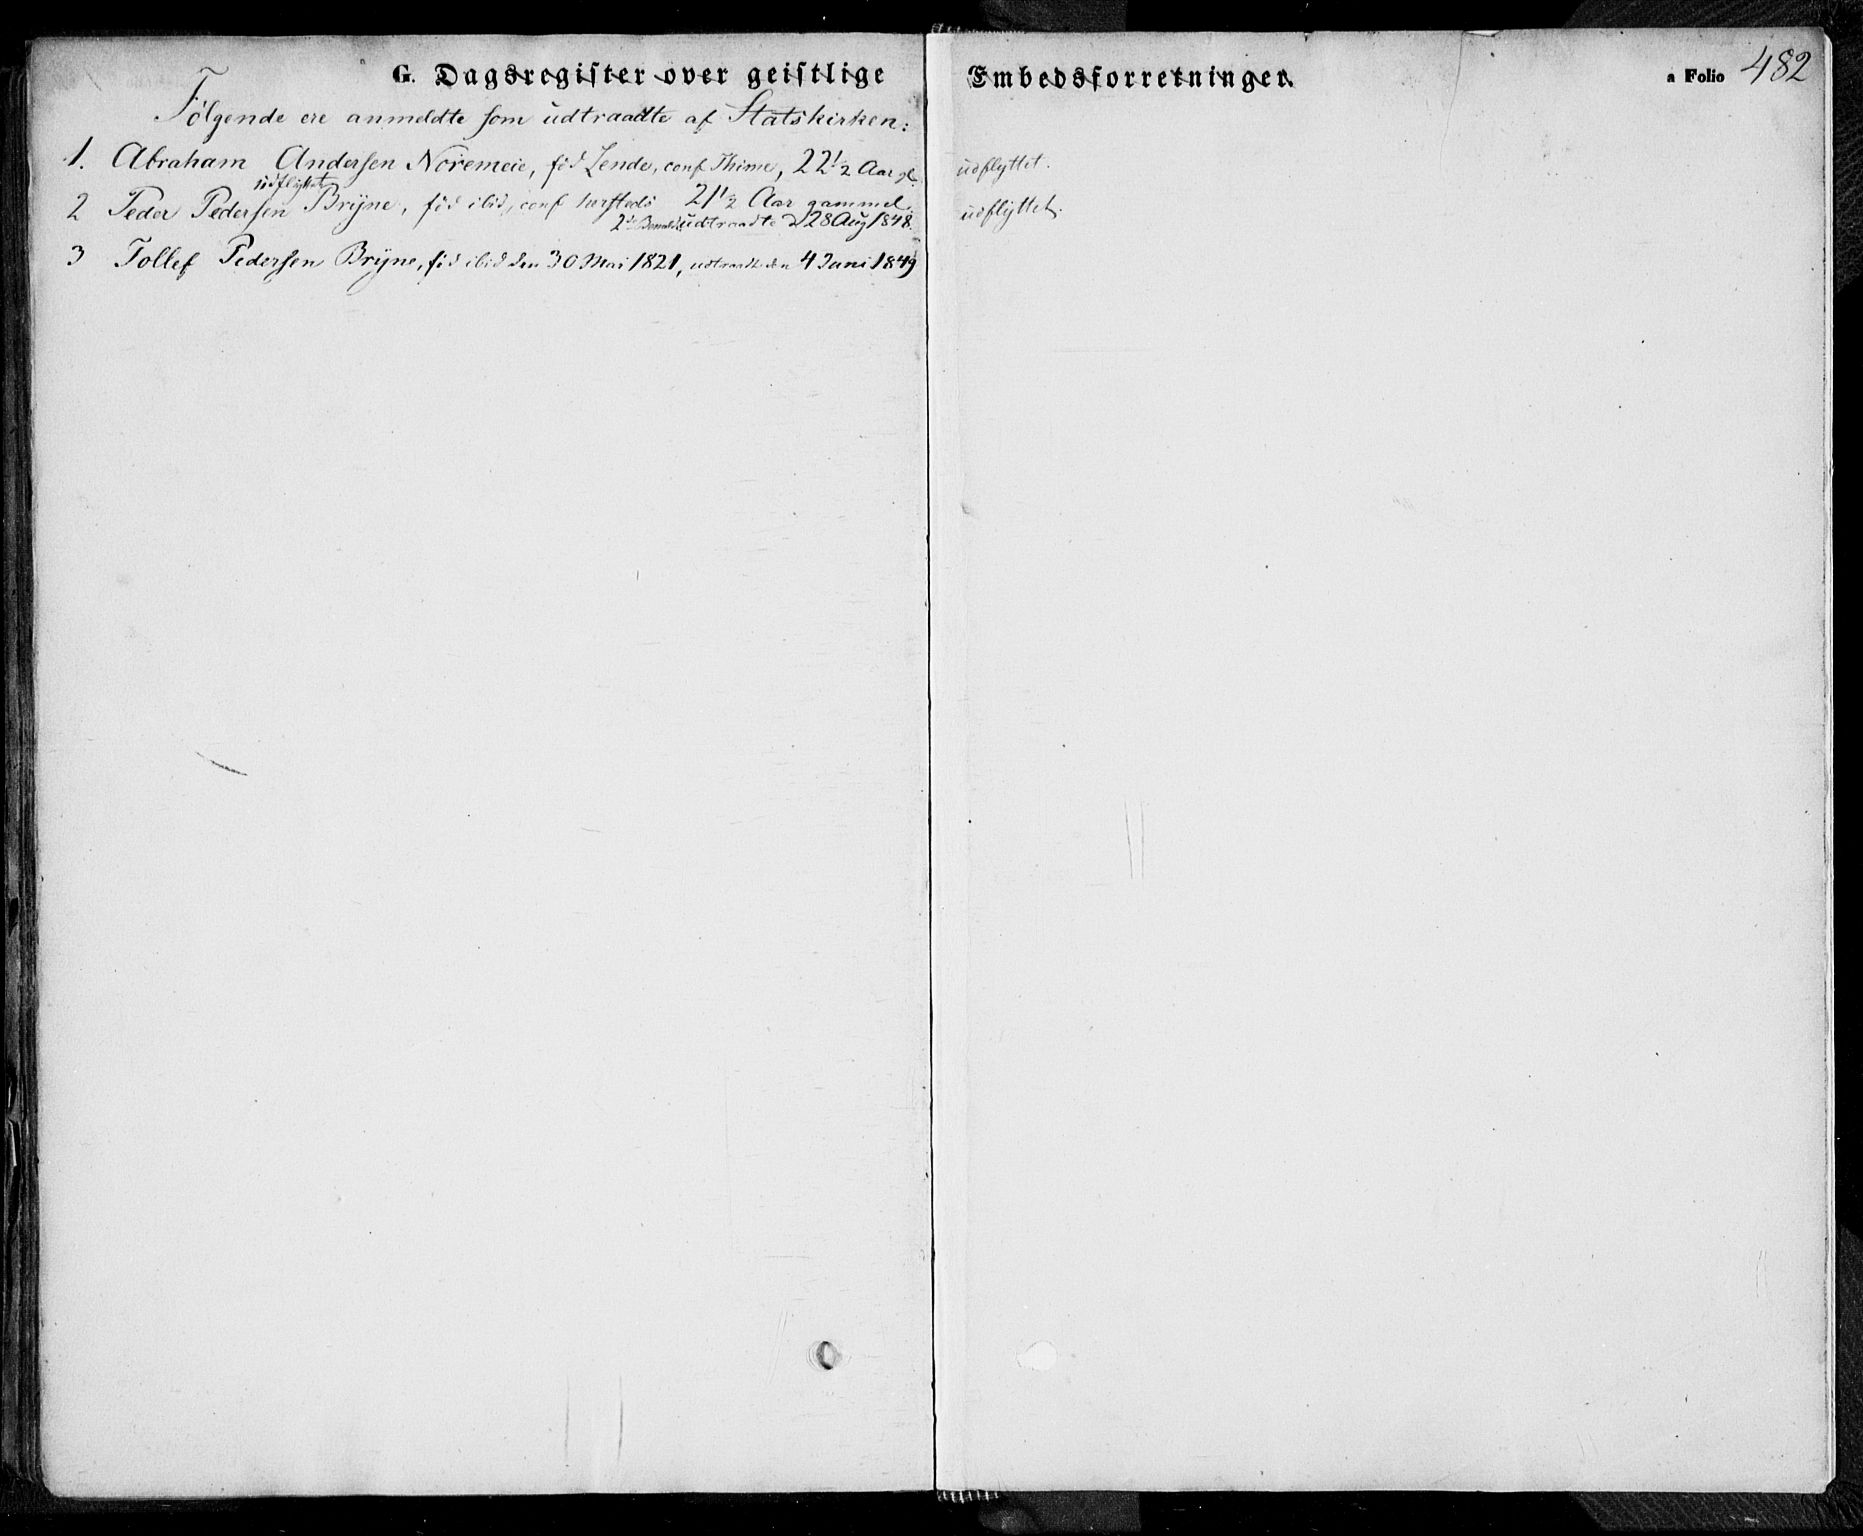 G. Dagsregister over geistlige Embedsforretninger. a Folio 482
Følgende ere anmeldte som udtraadte af Statskirken:
1. Abraham Andersen Noremeie, fød Lende, conf Thime, 22 1/2 Aar gl. udflyttet.
udflyttet
2 Peder Pedersen Bryne, fød ibid, conf hersteds 21 1/2 Aar gammel. udflyttet.
udtraadte d 28 Aug 1848.
3 Tollef Pedersen Bryne, fød ibid den 30 Mai 1821, udtraadt den 4 Juni 1849